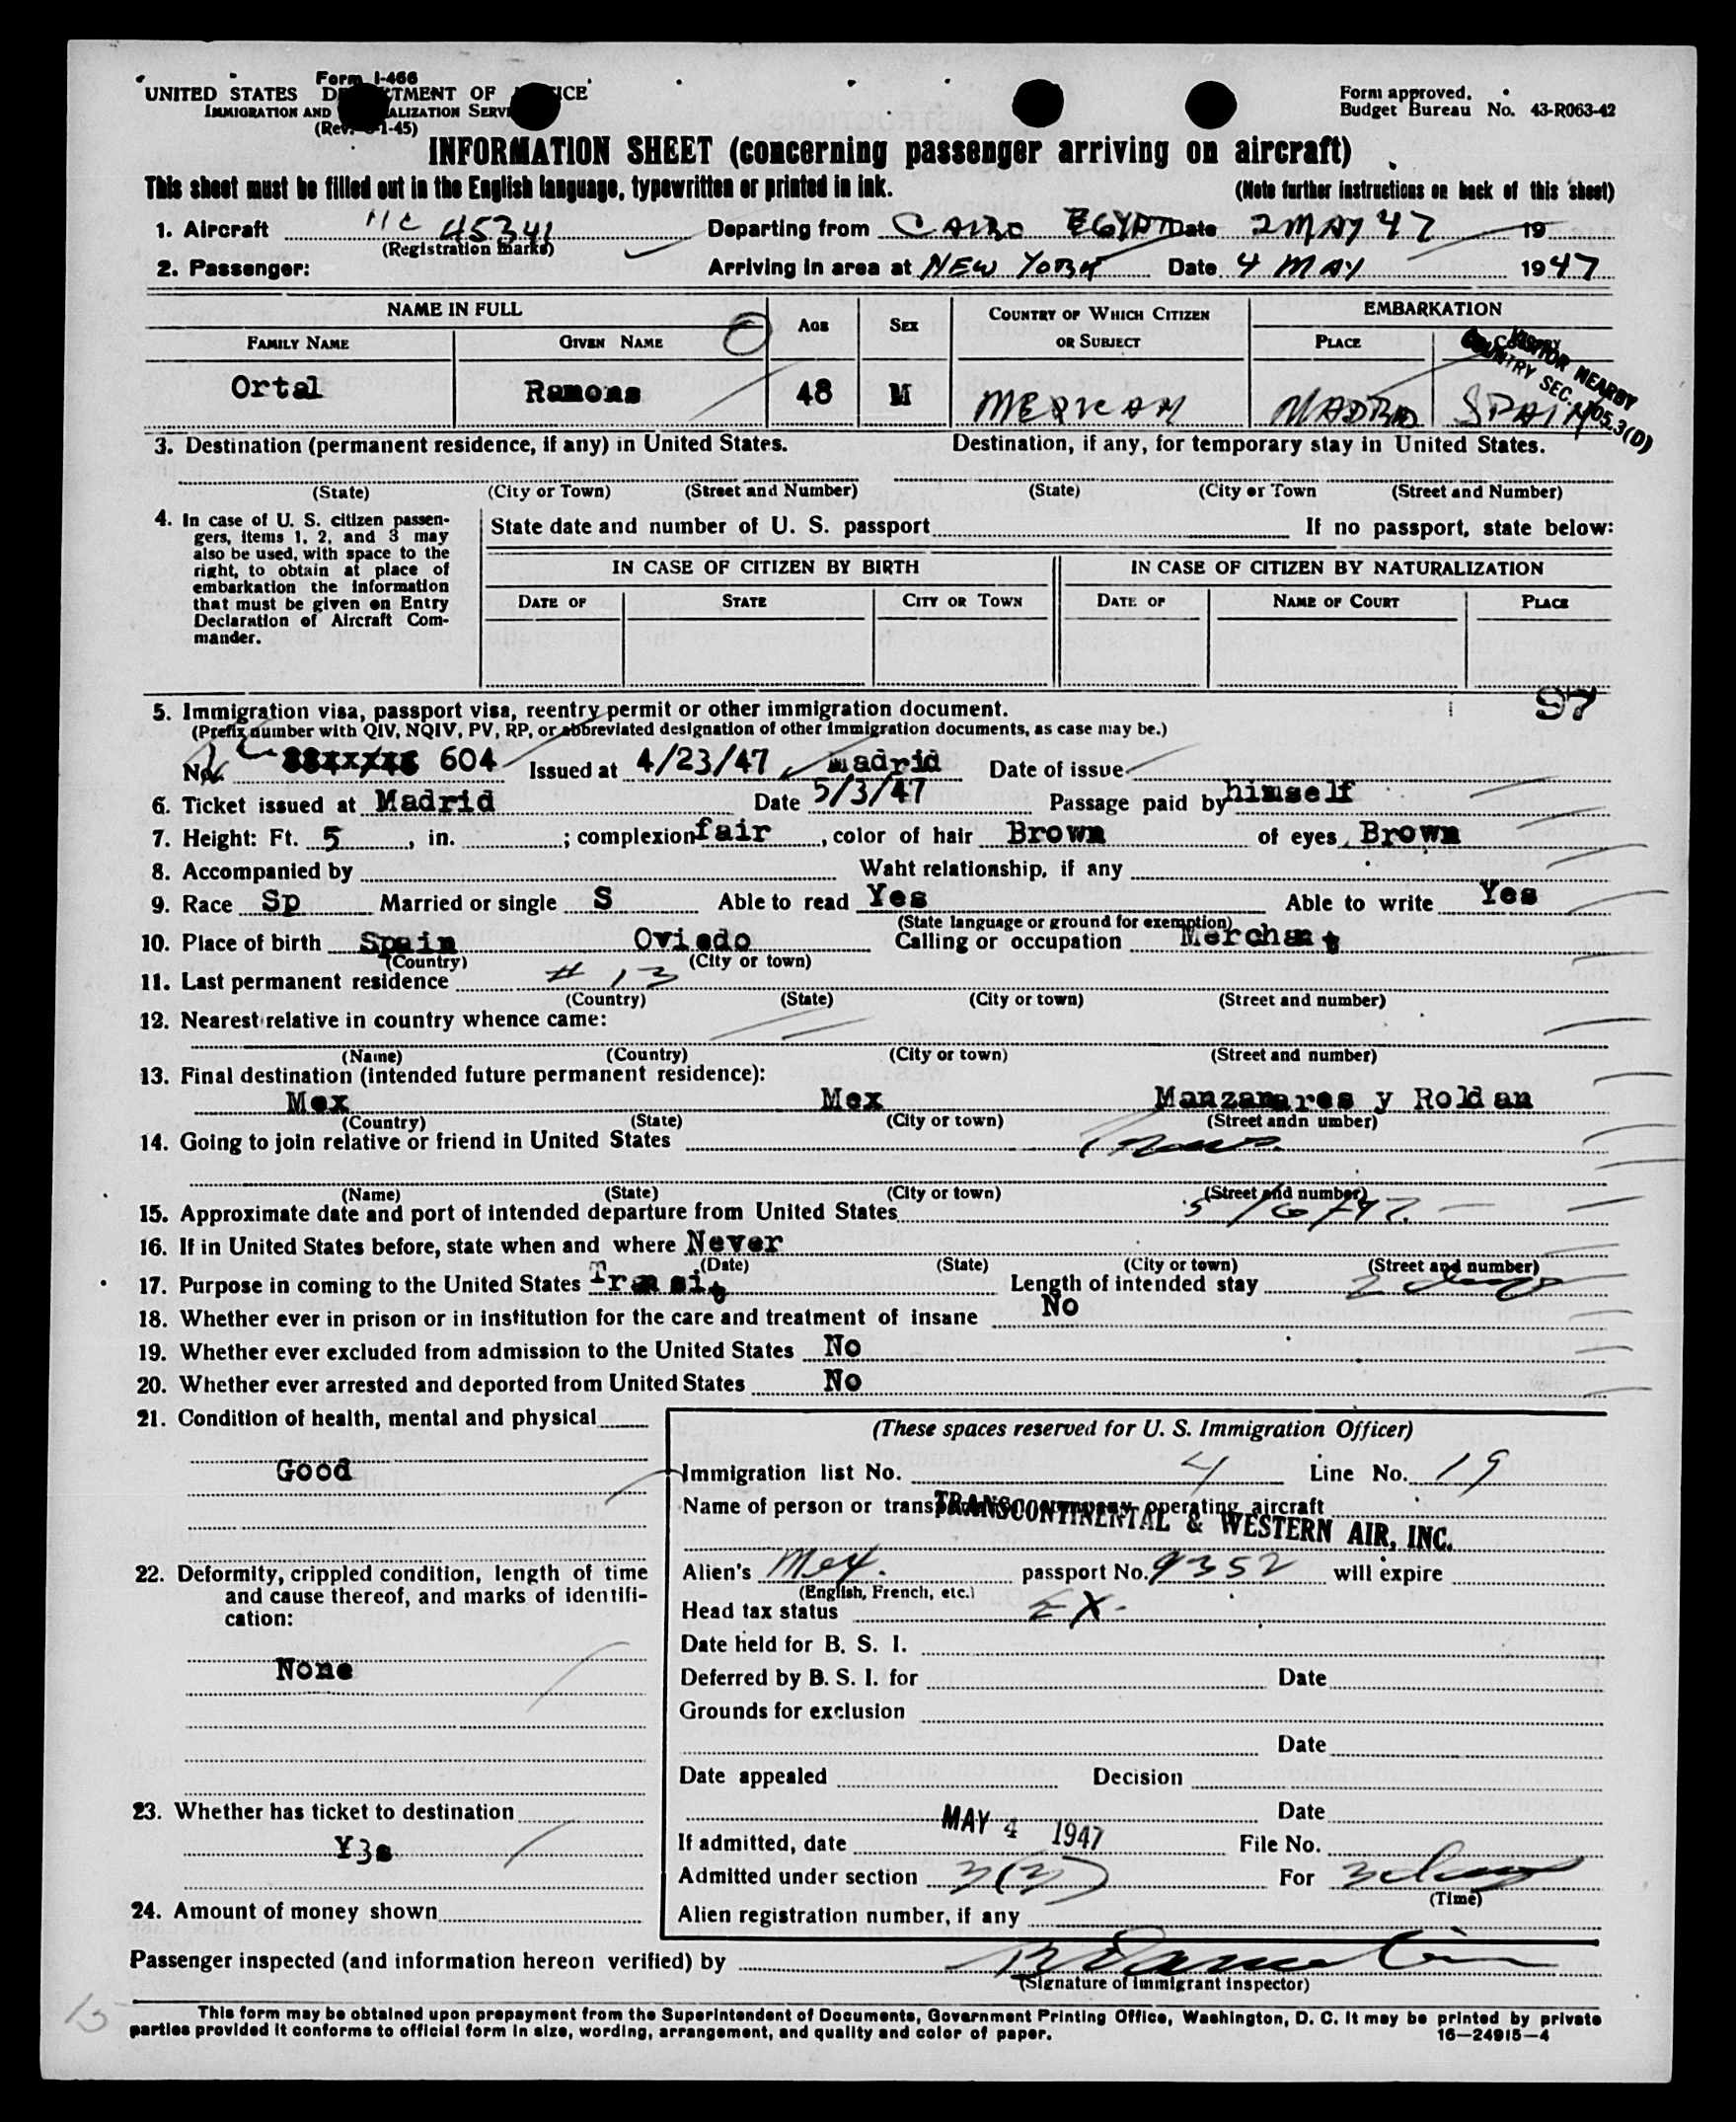 Form I-466
UNITED STATES DEPARTMENT OF JUSTICE
IMMIGRATION AND NATURALIZATION SERVICE
(Rev. -1-45)
Form approved.
Budget Bureau No. 43-R063-42
INFORMATION SHEET (concerning passenger arriving on aircraft)
This sheet must be filled out in the English language, typewritten or printed in ink. (Note further instructions on back of this sheet)
1. Aircraft NC 45341 Departing from CAIRO EGYPT Date 2 MAY 47 19
(Registration marks)
2. Passenger: Arriving in area at NEW YORK Date 4 MAY 1947
NAME IN FULL AGE SEX COUNTRY OF WHICH CITIZEN OR SUBJECT EMBARKATION
FAMILY NAME GIVEN NAME PLACE COUNTRY
VISITOR NEARBY
COUNTRY SEC. 105.3(D)
Ortal Ramons 48 M MEXICAN MADRID SPAIN
3. Destination (permanent residence, if any) in United States. Destination, if any, for temporary stay in United States.
(State) (City or Town) (Street and Number) (State) (City or Town (Street and Number)
4. In case of U. S. citizen passen-
gers, items 1, 2, and 3 may
also be used, with space to the
right, to obtain at place of
embarkation the information
that must be given on Entry
Declaration of Aircraft Com-
mander.
State date and number of U. S. passport If no passport, state below:
IN CASE OF CITIZEN BY BIRTH IN CASE OF CITIZEN BY NATURALIZATION
DATE OF STATE CITY OR TOWN DATE OF NAME OF COURT PLACE
97
5. Immigration visa, passport visa, reentry permit or other immigration document.
(Prefix number with QIV, NQIV, PV, RP, or abbreviated designation of other immigration documents, as case may be.)
No. 604 Issued at 4/23/47 madrid Date of issue
6. Ticket issued at Madrid Date 5/3/47 Passage paid by himself
7. Height: Ft. 5, in. ; complexion fair, color of hair Brown of eyes Brown
8. Accompanied by Waht relationship, if any
9. Race Sp Married or single S Able to read Yes Able to write Yes
(State language or ground for exemption)
10. Place of birth Spain Oviedo Calling or occupation Merchant
(Country) (City or town)
11. Last permanent residence # 13
(Country) (State) (City or town) (Street and number)
12. Nearest relative in country whence came:
(Name) (Country) (City or town) (Street and number)
13. Final destination (intended future permanent residence):
Mex Mex Manzanares y Roldan
(Country) (State) (City or town) (Street andn umber)
14. Going to join relative or friend in United States
(Name) (State) (City or town) (Street and number)
15. Approximate date and port of intended departure from United States 5/6/47
16. If in United States before, state when and where Never
(Date) (State) (City or town) (Street and number)
17. Purpose in coming to the United States Transit Length of intended stay 2 days
18. Whether ever in prison or in institution for the care and treatment of insane No
19. Whether ever excluded from admission to the United States No
20. Whether ever arrested and deported from United States No
21. Condition of health, mental and physical
Good
22. Deformity, crippled condition, length of time
and cause thereof, and marks of identifi-
cation:
None
23. Whether has ticket to destination
Y3s
24. Amount of money shown
(These spaces reserved for U. S. Immigration Officer)
Immigration list No. 4 Line No. 19
Name of person or transportation company operating aircraft
TRANSCONTINENTAL & WESTERN AIR, INC.
Alien's Mex. passport No. 9352 will expire
(English, French, etc.)
Head tax status EX-
Date held for B. S. I.
Deferred by B. S. I. for Date
Grounds for exclusion
Date
Date appealed Decision
Date
If admitted, date MAY 4 1947 File No.
Admitted under section 3(3) For 3 days
(Time)
Alien registration number, if any
Passenger inspected (and information hereon verified) by
(Signature of immigrant inspector)
15
This form may be obtained upon prepayment from the Superintendent of Documents, Government Printing Office, Washington, D. C. It may be printed by private
parties provided it conforms to official form in size, wording, arrangement, and quality and color of paper. 16—24915—4